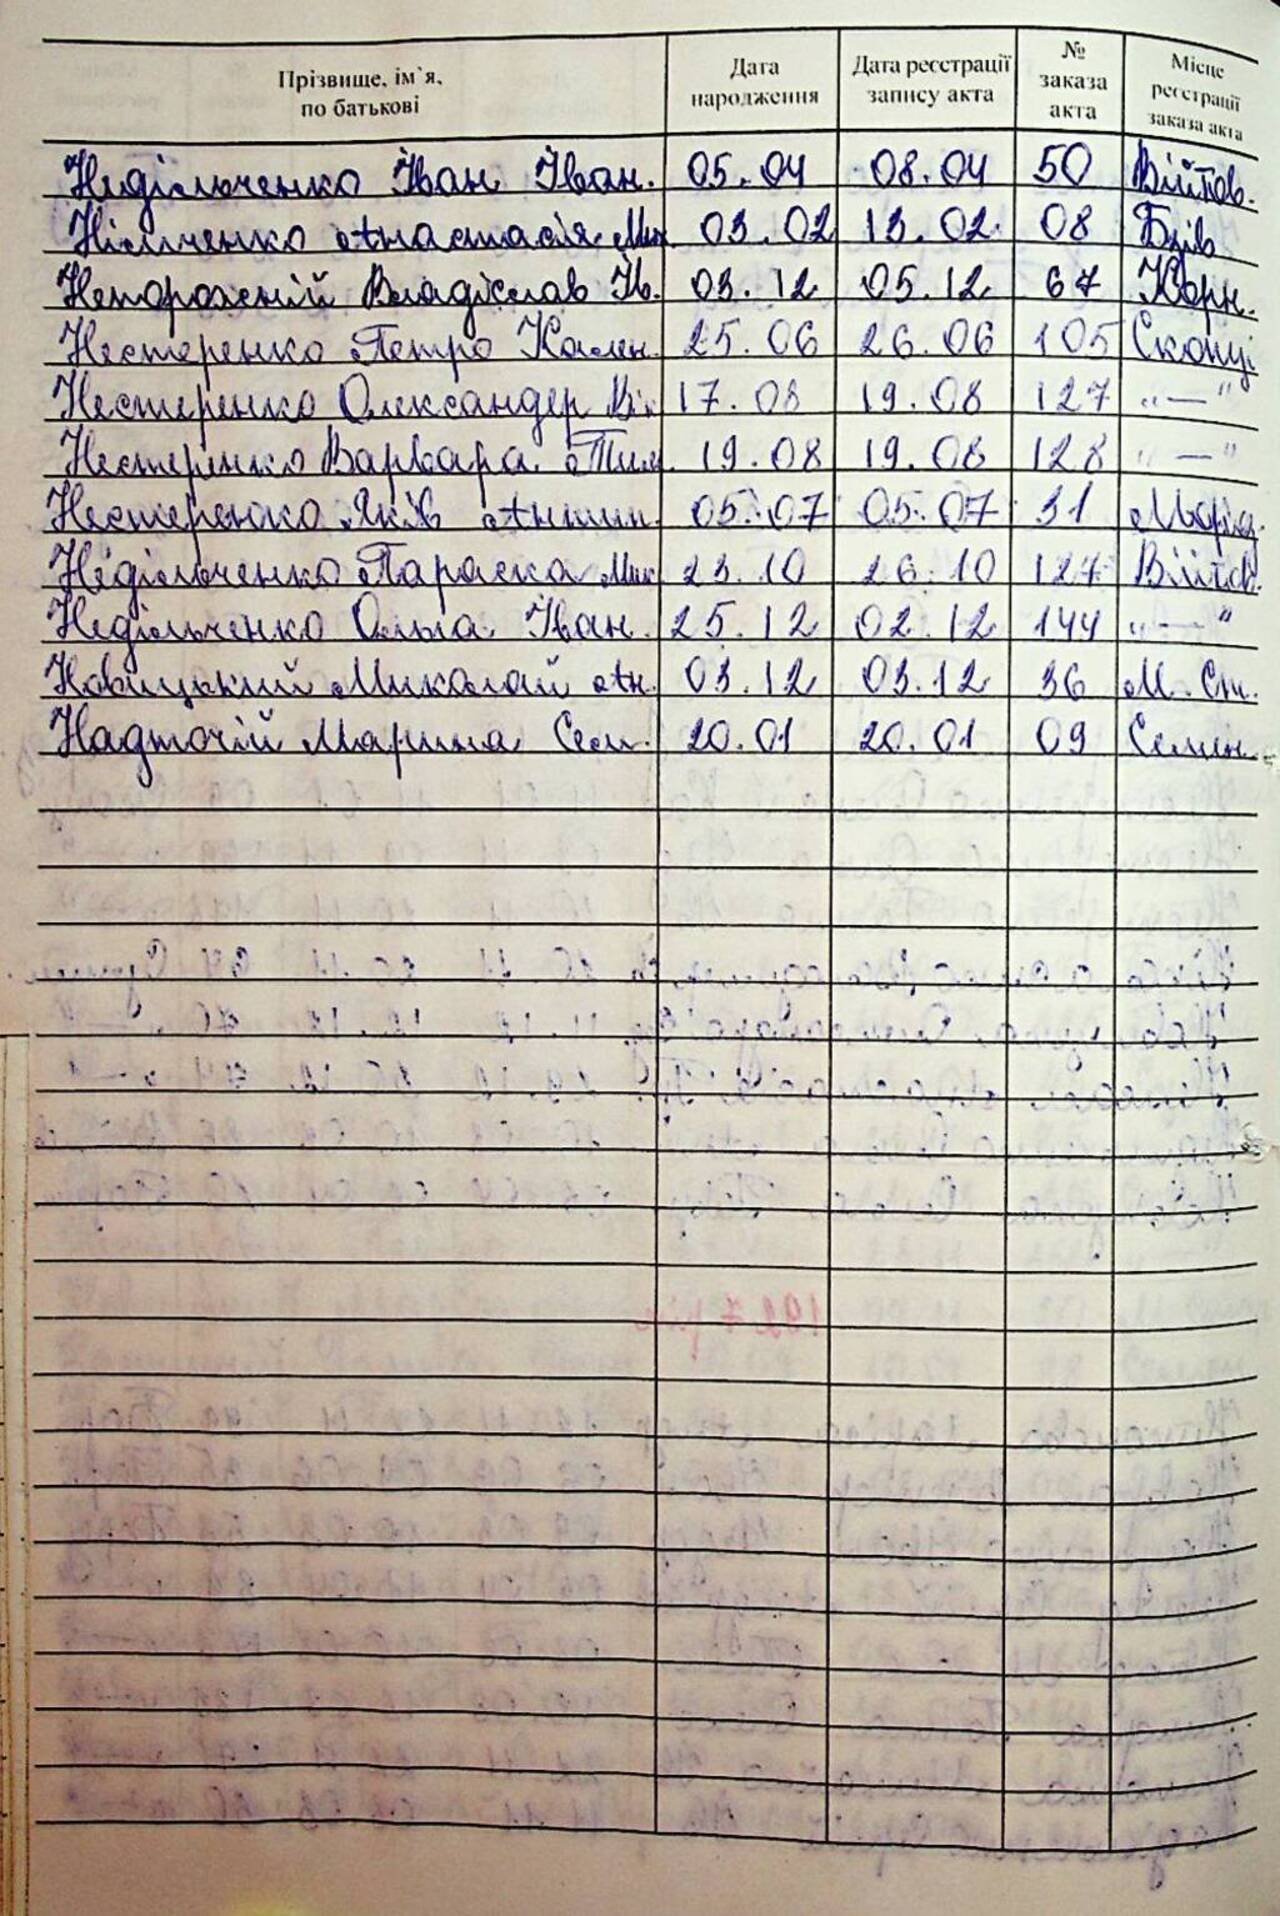 Прізвище, ім`я, по батькові Дата народження Дата реєстрації запису акта № заказа акта Місце реєстрації заказа акта
Недільченко Іван Іван. 05.04 08.04 50 Війтов.
Нільченко Анастасія Мих 03.02 13.02 08 Бзів
Непорожній Владіслав Ів. 03.12 05.12 67 Корн.
Нестеренко Петро Кален. 25.06 26.06 105 Скопці
Нестеренко Олександер 17.08 19.08 127 "—"
Нестеренко Варвара Тим. 19.08 19.08 128 "—"
Нестеренко Яків 05.07 05.07 31
Недільченко Параска Мик 23.10 26.10 127 Війтов.
Недільченко Ольга Іван. 25.12 02.12 144 "—"
Новицький Миколай Ан. 03.12 03.12 36 М. Ст.
Надточій Марина Сем. 20.01 20.01 09 Семен.